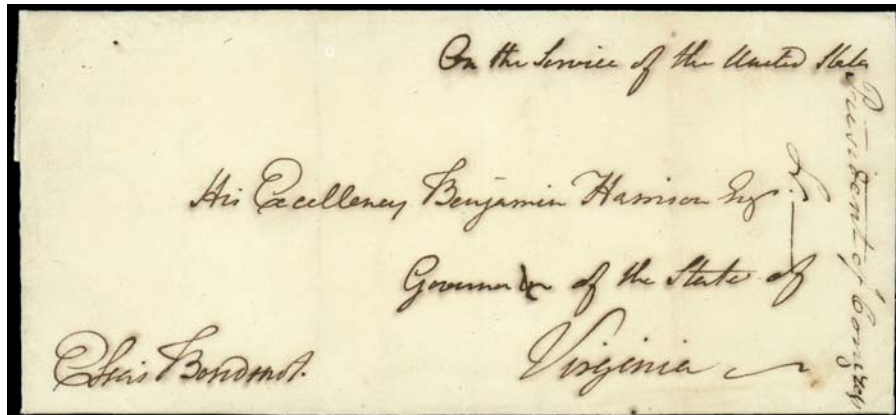 On the Service of the United States
His Excellency Benjamin Harrison Esqr.
Governor of the State of
Virginia
Elias Boudinot.
President of Congress